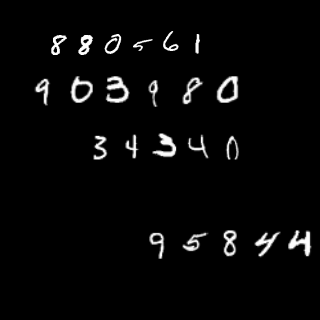 880561
903980
34340
95844